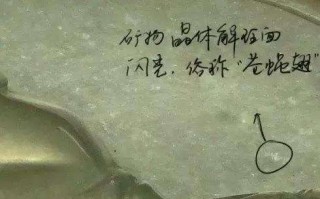 矿物晶体解理面
闪亮，俗称“苍蝇翅”